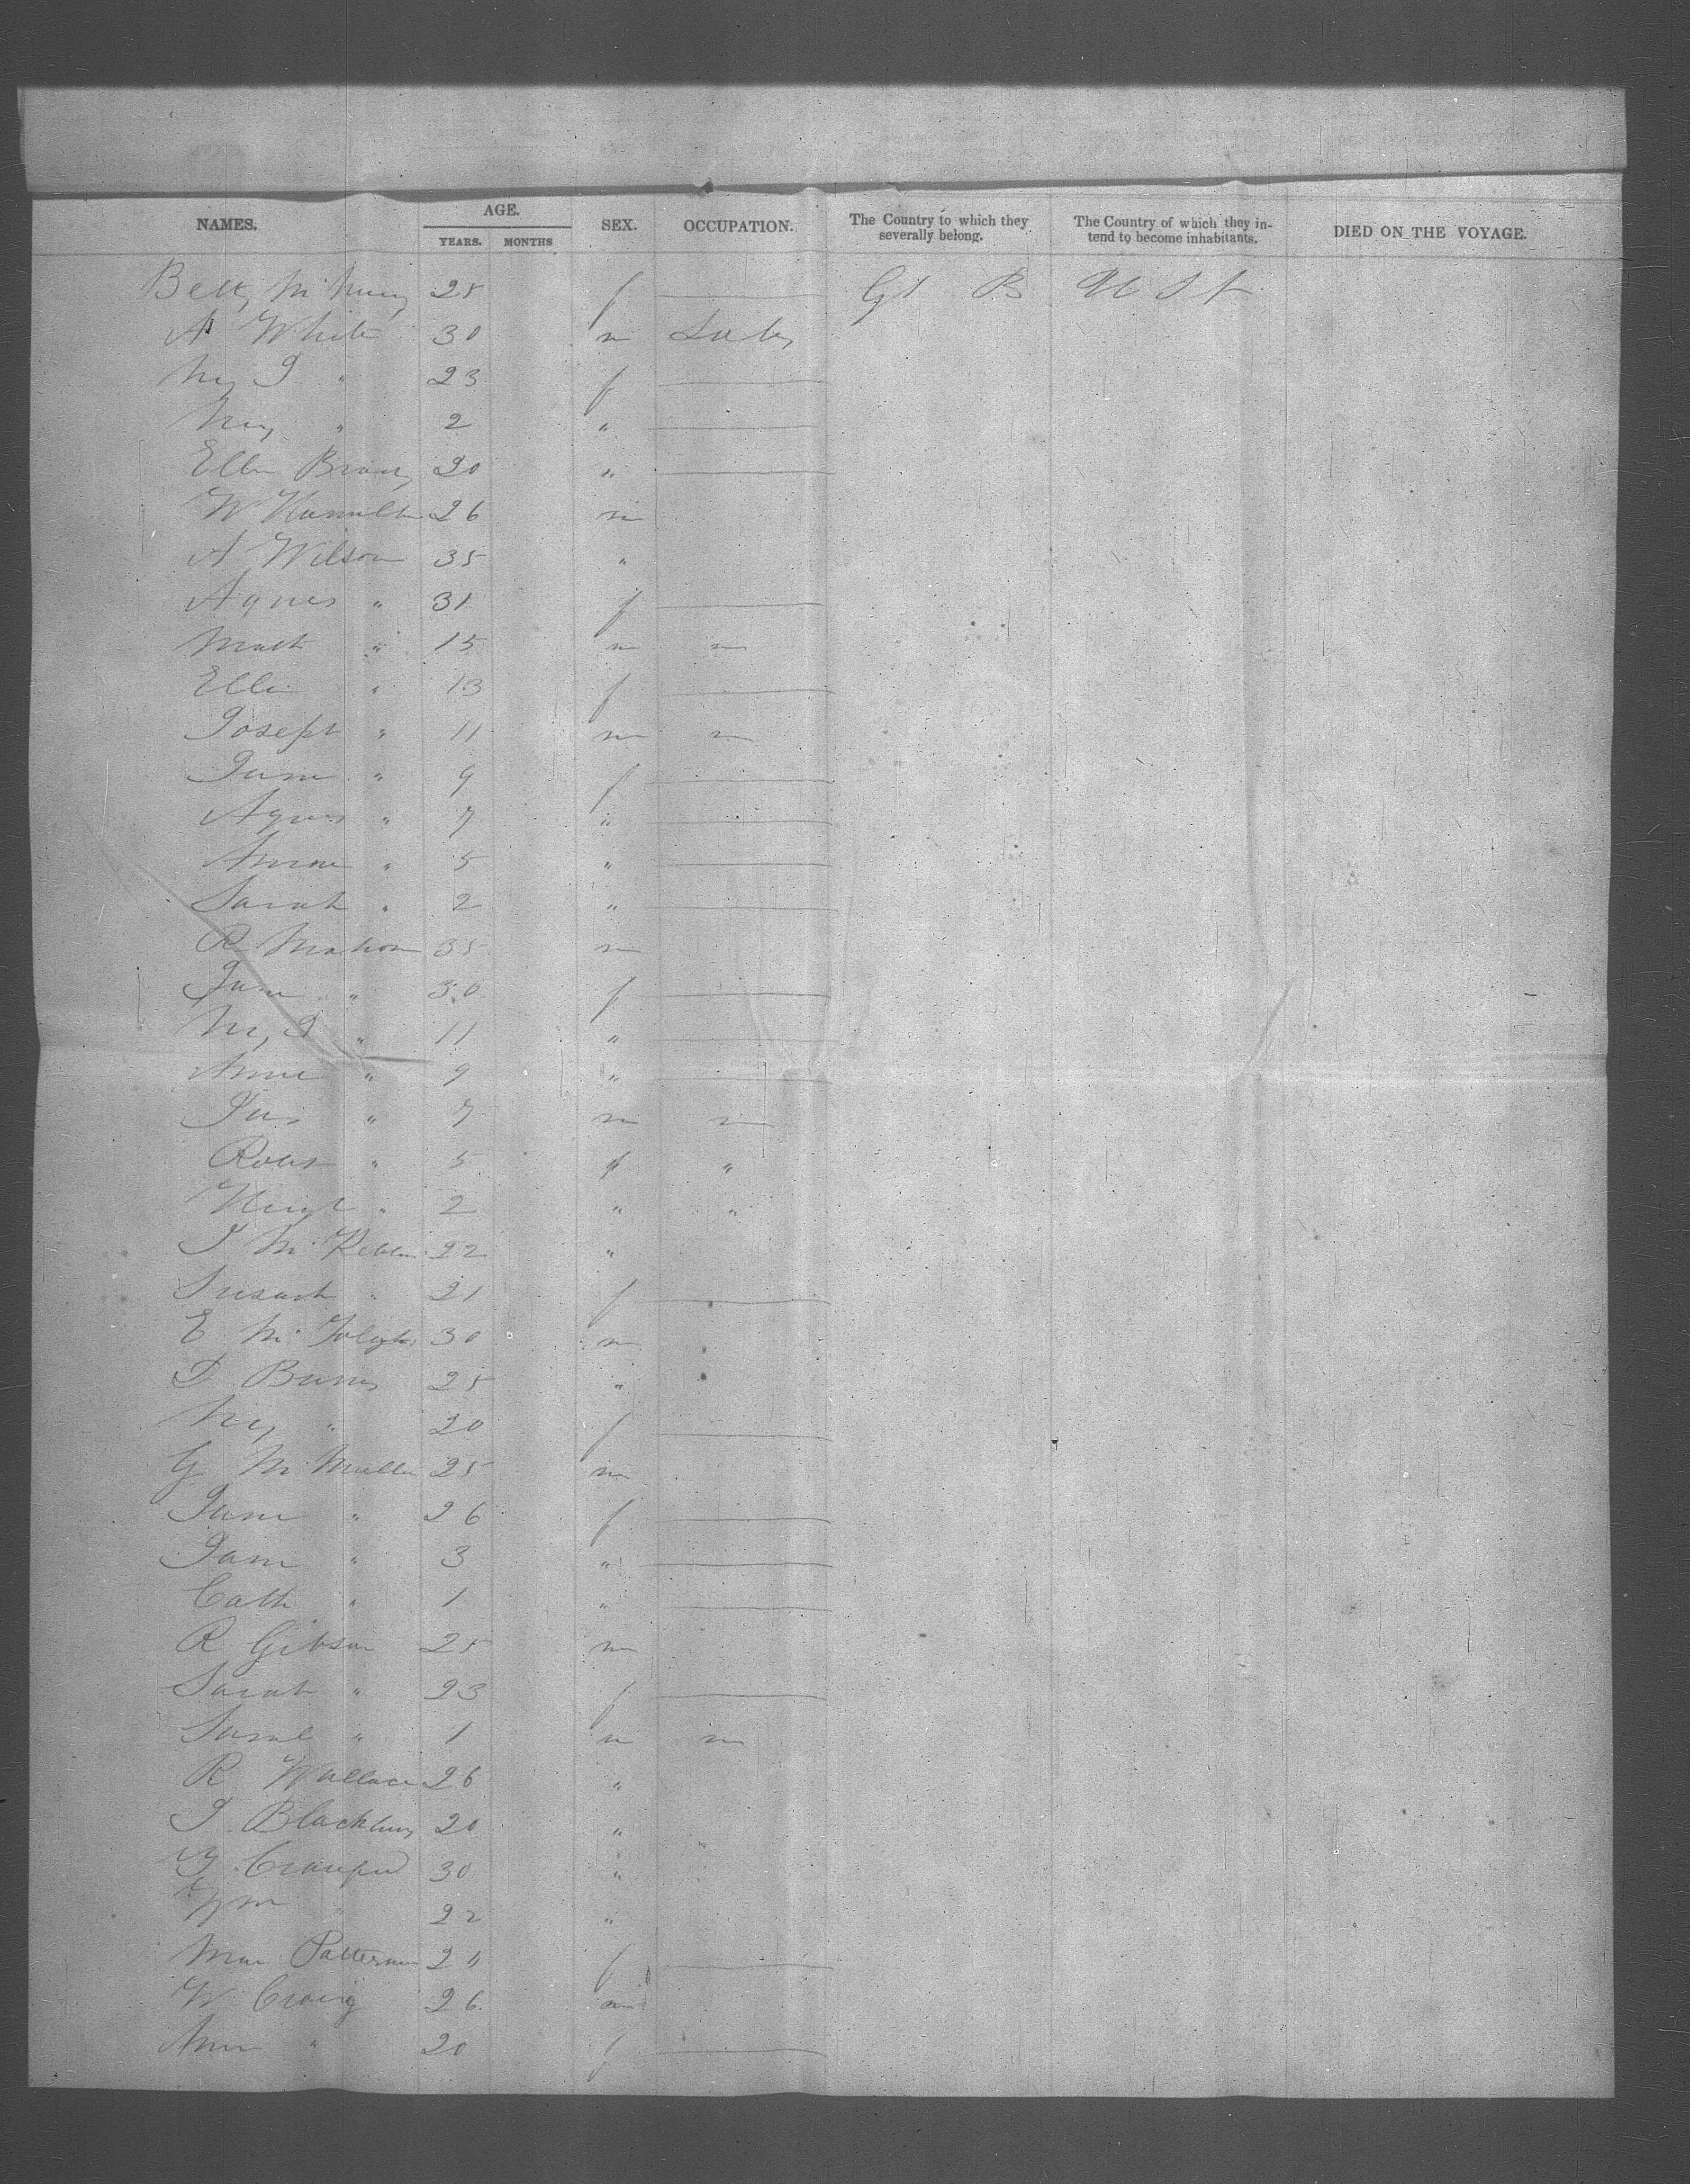 NAMES. AGE. YEARS. MONTHS SEX. OCCUPATION. The Country to which they severally belong. The Country of which they intend to become inhabitants. DIED ON THE VOYAGE.
Betty 25 f Gt B U St
A White 30 m
My J " 23 f
My " 2 "
Ellen 20 "
W Hamilton 26 m
A Wilson 35 "
Agnes " 31 f
Matt " 15 m
Ellen " 13 f
Joseph " 11 m
Jane " 9 f
Agnes " 7 "
Annie " 5 "
Sarah " 2 "
R Mahon 35 m
Jane " 30 f
My J " 11 "
Anne " 9 "
Jas " 7 m
Robert " 5 "
Hugh " 2 " "
J 22 "
Susan " 21 f
E 30 m
D Burns 25 "
My " 20 f
G McMullen 25 m
Jane " 26 f
Jane " 3 "
Cath " 1 "
R Gibson 25 m
Sarah " 23 f
Saml " 1 m
R Wallace 26 "
J Blackburn 20 "
J Crawford 30 "
Wm " 22 "
Patterson f
W Craig 26 m
Ann " 20 f